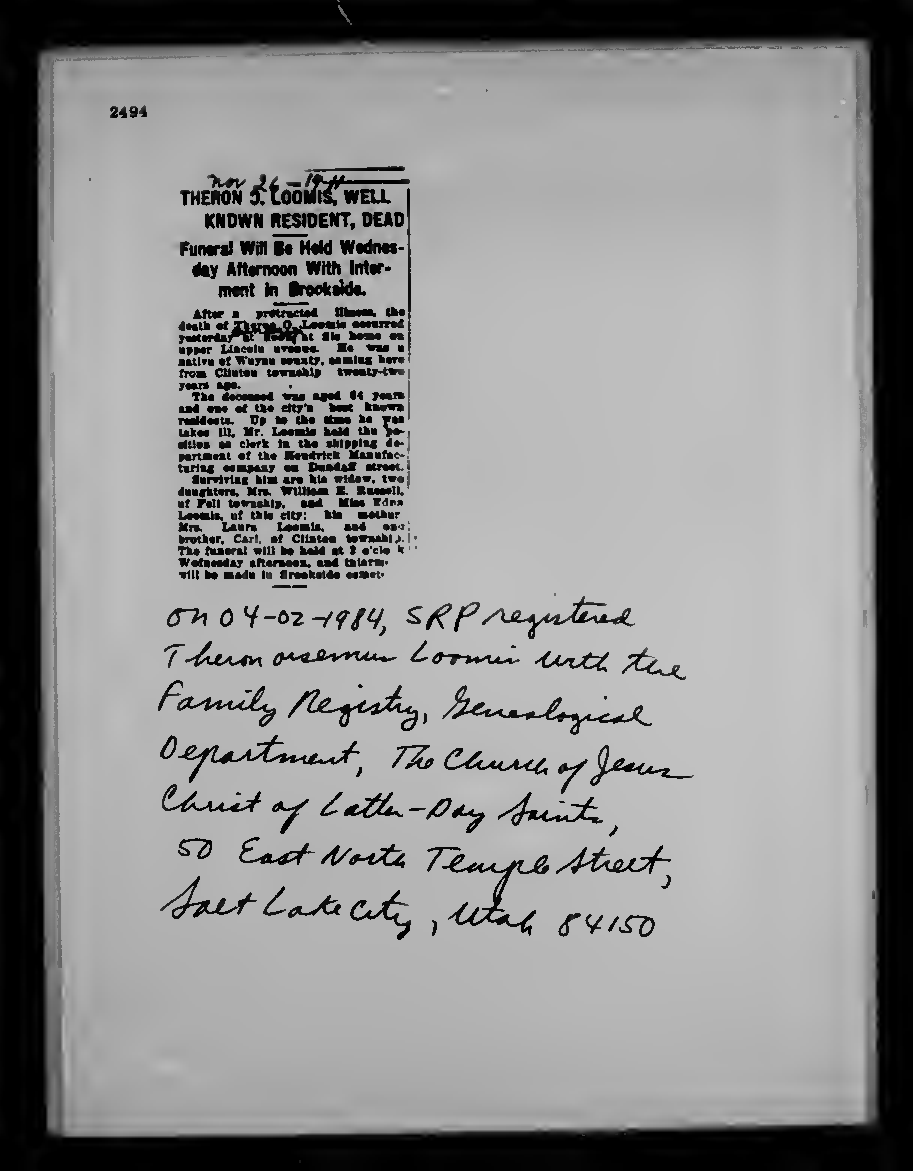 2494
Nov 26-1911
THERON J. LOOMIS, WELL
KNOWN RESIDENT, DEAD
Funeral Will Be Held Wednes-
day Afternoon With Inter-
ment in Brookside.
After a protracted illness, the
death of Theron O. Loomis occurred
yesterday at at his home on
upper Lincoln avenue. He was a
native of Wayne county, coming here
from Clinton township twenty-two
years ago.
The deceased was aged 64 years
and one of the city's best known
residents. Up to the time he was
taken ill, Mr. Loomis held the po-
sition as clerk in the shipping de-
partment of the Hendrick Manufac-
turing company on Dundaff street.
Surviving him are his widow, two
daughters, Mrs. William E. Russell,
of Fell township, and Miss Edna
Loomis, of this city; his mother
Mrs. Laura Loomis, and one
brother, Carl, of Clinton township.
The funeral will be held at 2 o'clo k
Wednesday afternoon, and interm-
will be made in Brookside cemet-
on 04-02-1984, SRP registered
Theron Loomis with the
Family Registry, Genealogical
Department, The Church of Jesus
Christ of Latter-Day Saints,
50 East North Temple Street,
Salt Lake City, Utah 84150